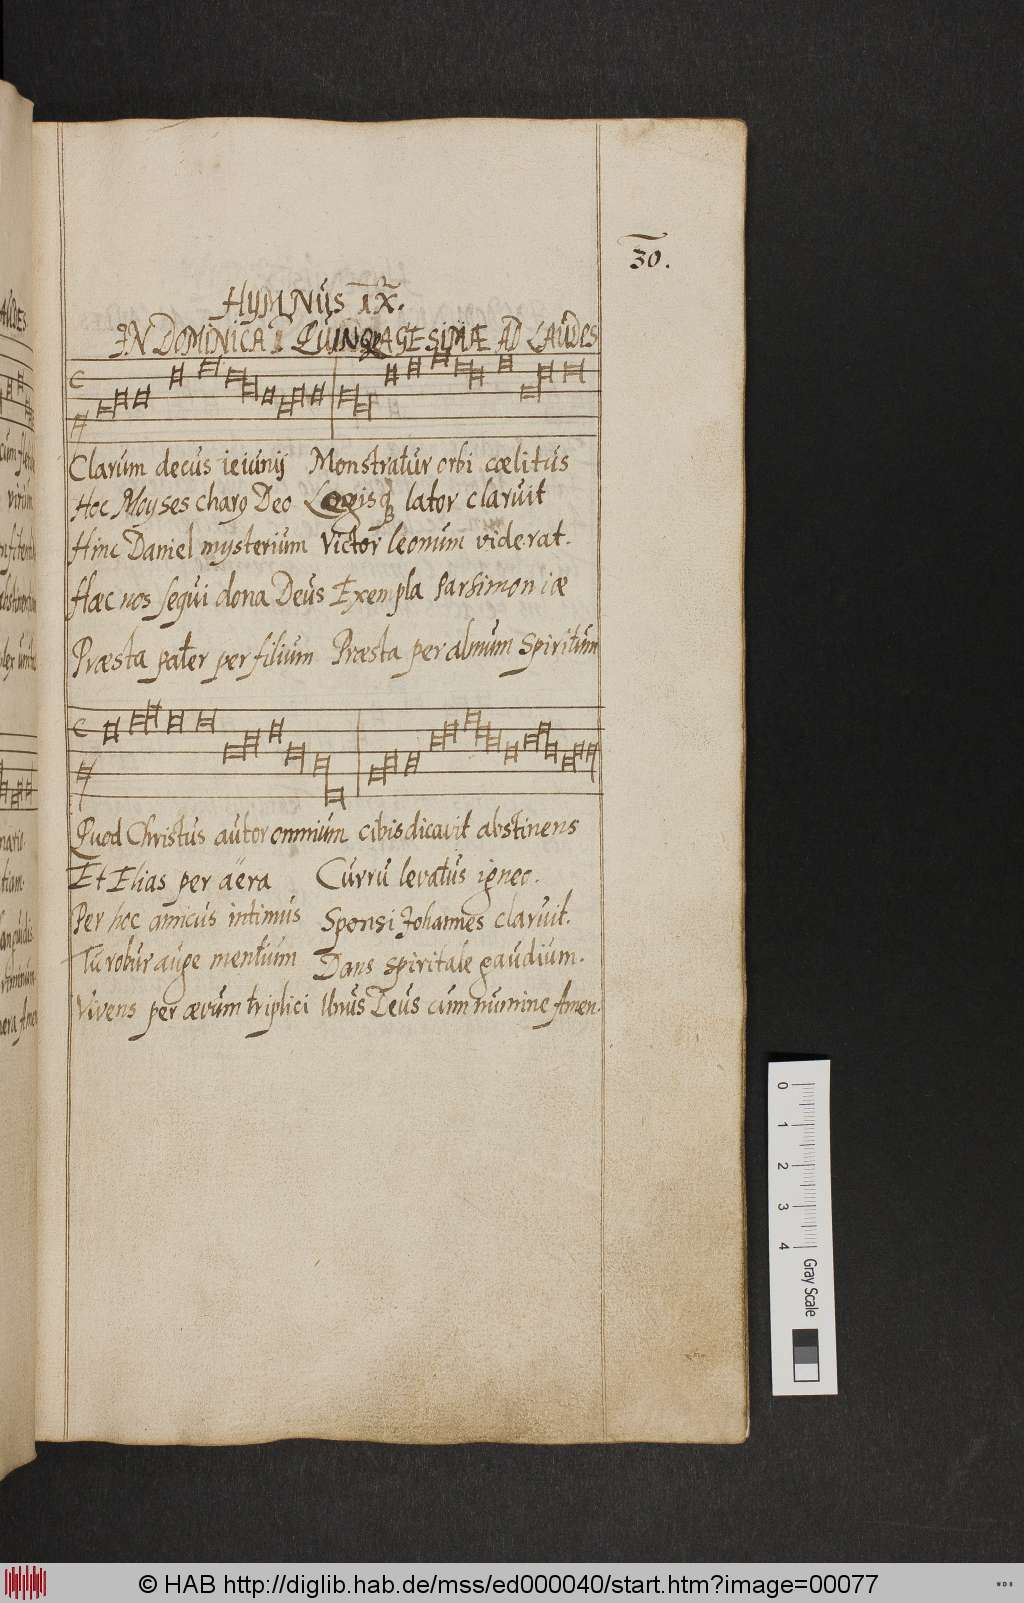 30.
HYMNUS IX.
IN DOMINICA QUINQUAGESIMÆ AD LAUDES
Clarum decus ieiunij Monstratur orbi cælitus
Hoc Moyses charꝯ Deo Legisqꝫ lator claruit
Hinc Daniel mysterium Victor leonum viderat.
Hæc nos sequi dona Deus Exempla Parsimoniæ
Præsta pater per filium Præsta per almum Spiritum
Quod Christus autor omnium cibis dicavit abstinens
Et Elias per aëra Curru levatus igneo.
Per hoc amicus intimus Sponsi Johannes claruit.
Tu robur auge mentium Dans spiritale gaudium.
Vivens per ævum triplici Unus Deus cum numine Amen.
0 1 2 3 4 Gray Scale
© HAB http://diglib.hab.de/mss/ed000040/start.htm?image=00077